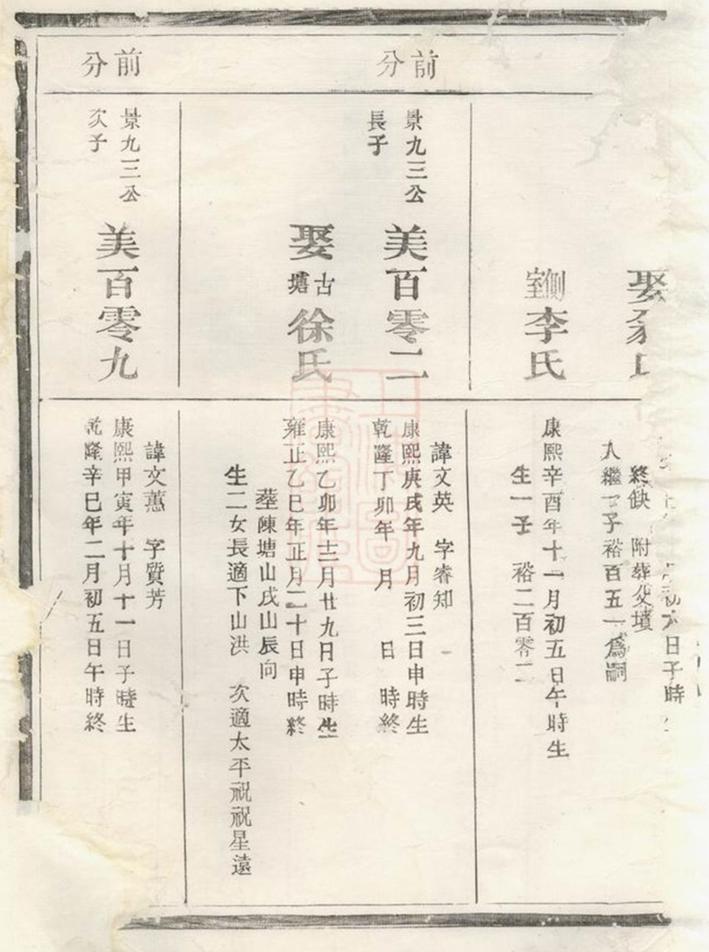 娶
側室李氏
初六日子時
終缺 附葬父墳
入繼一子裕百五一為嗣
康熙辛酉年十一月初五日午時生
生一子 裕二百零二
前分
景九三公
長子
美百零二
娶古塘徐氏
諱文英 字睿知
康熙庚戌年九月初三日申時生
乾隆丁卯年 月 日 時終
康熙乙卯年十二月廿九日子時生
雍正乙巳年正月二十日申時終
葬陳塘山戌山辰向
生二女長適下山洪 次適太平祝祝星遠
前分
景九三公
次子
美百零九
諱文蕙 字質芳
康熙甲寅年十月十一日子時生
乾隆辛巳年二月初五日午時終